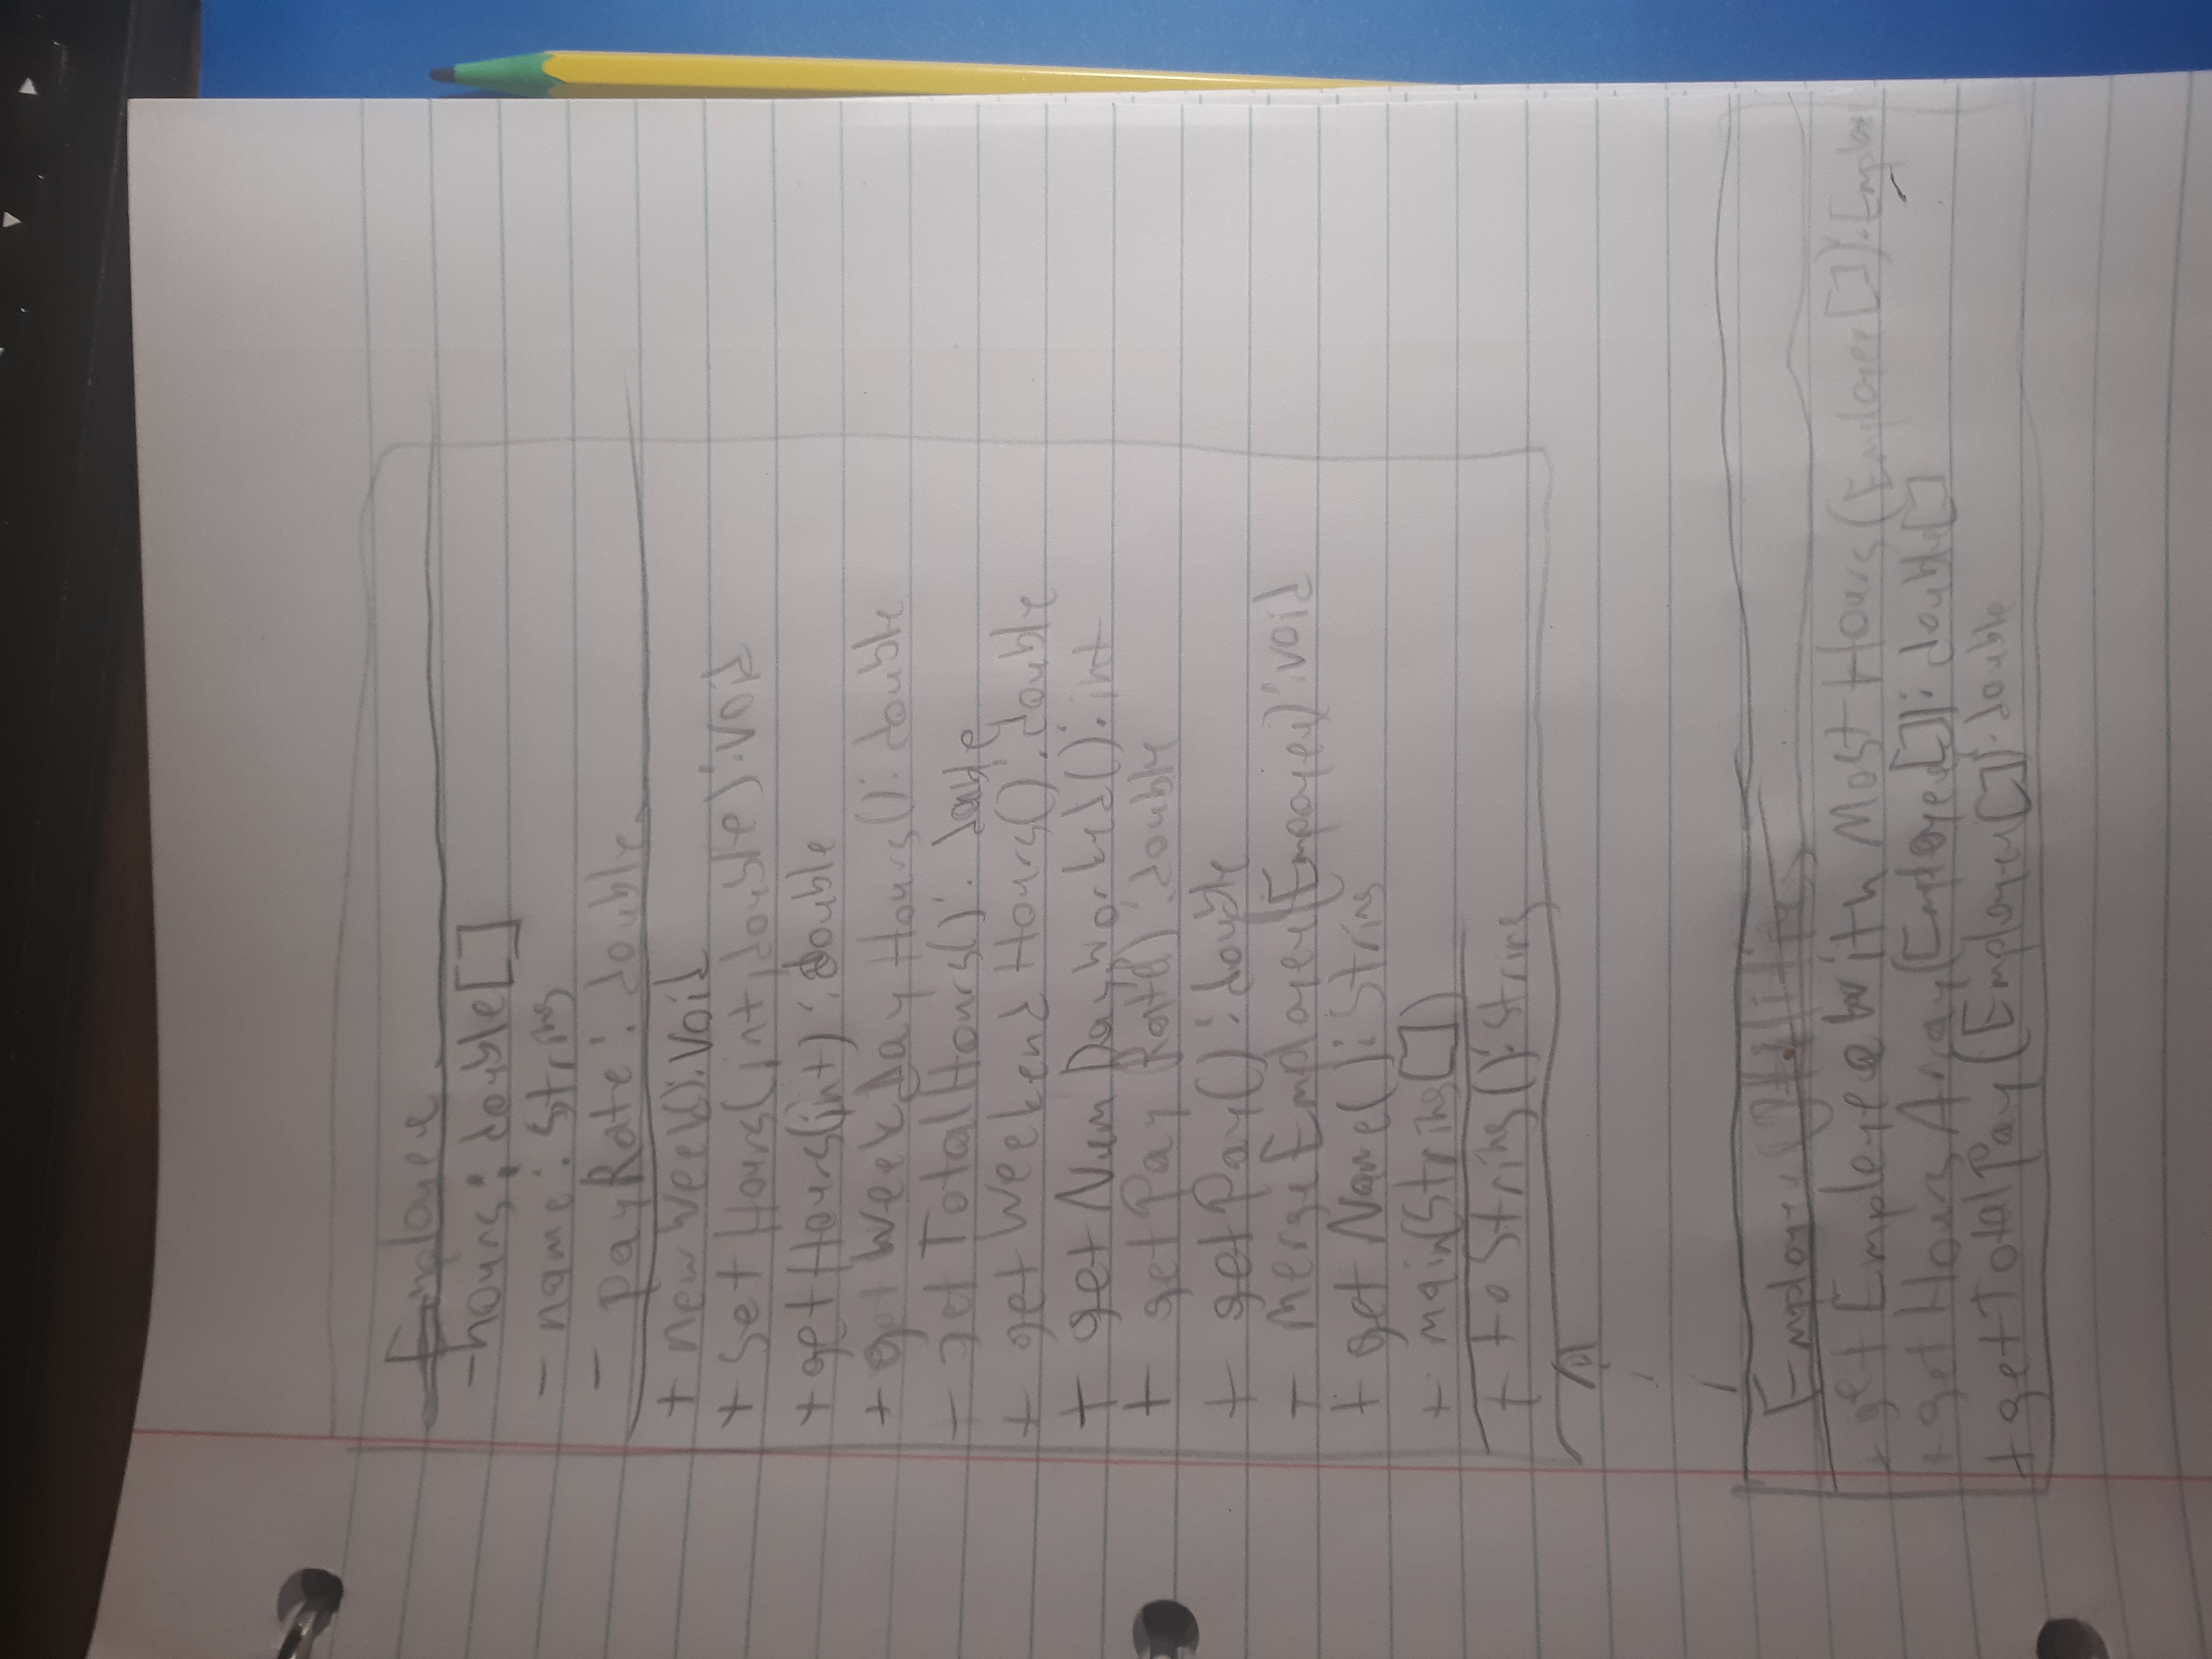 Employee
-hours: double[]
- name: String
- payRate: double
+ newWeek(): void
+ setHours(int, double): void
+ getHours(int): double
+ getWeekDayHours(): double
+ getTotalHours(): double
+ getWeekendHours(): double
+ getNumDaysWorked(): int
+ getPayRate(): double
+ getPay(): double
+ mergeEmployee(Empoyee): void
+ getName(): String
+ main(String[])
+ toString(): String
Employee Utilities
+ getEmployeeWithMostHours(Employee[]): Employee
+ getHoursArray(Employee[]): double[]
+ getTotalPay(Employee[]): double